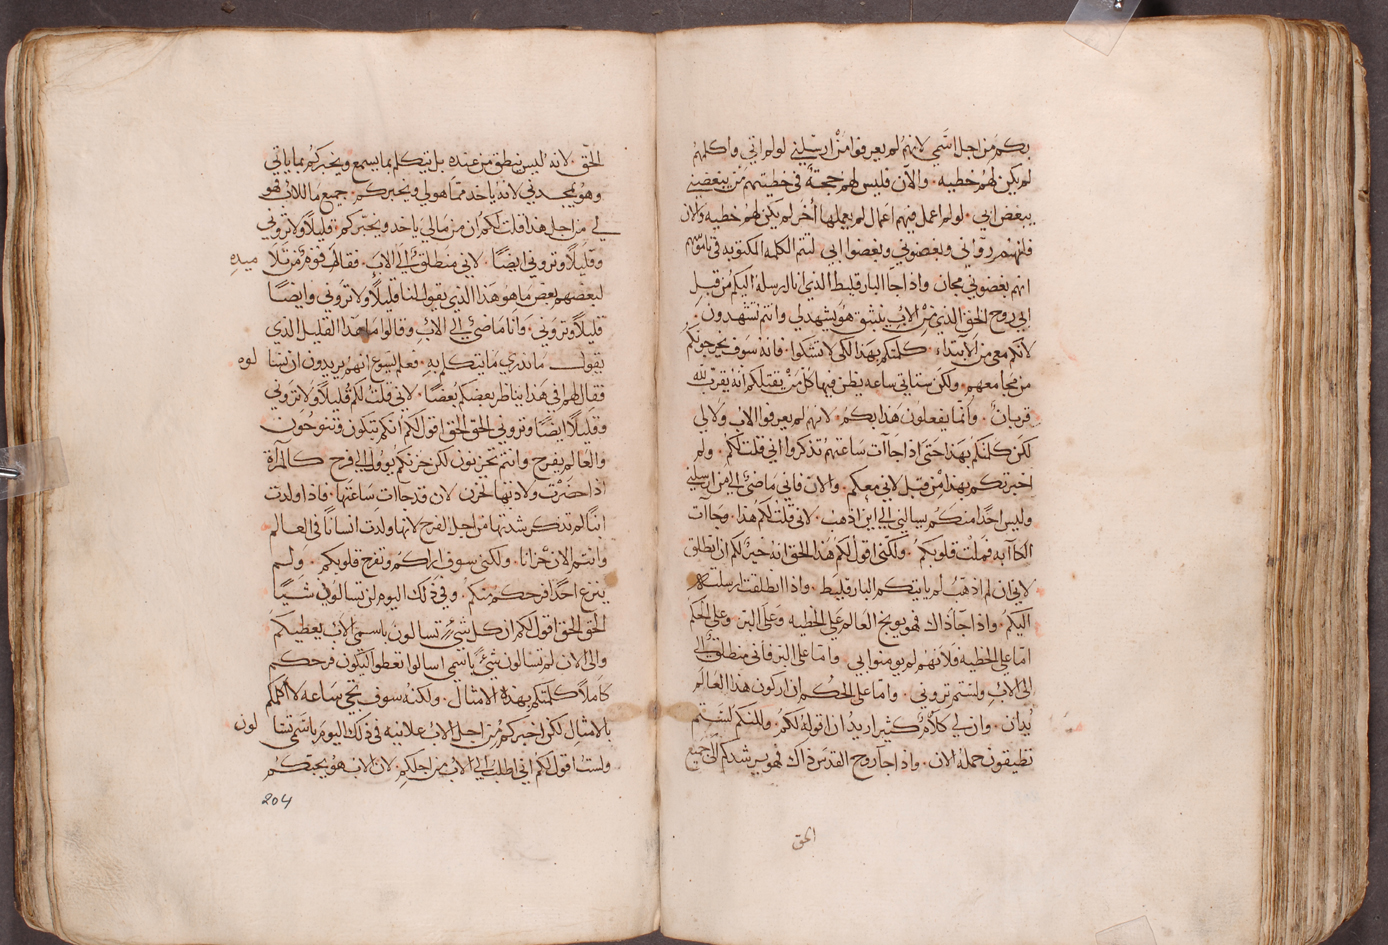 بكم من اجل اسمي لانهم لم يعرفوا من ارسلني لو لم اتي واكلمهم
لم يكن لهم خطيه · والآن فليس لهم حجة في خطيتهم من يبغضني
يبغض ابي · لو لم اعمل فيهم اعمال لم يعملها أخر لم يكن لهم خطيه والان
فانهم راواني وبغضوني وبغضوا ابي لتتم الكلمه المكتوبه في ناموسهم
انهم بغضوني مجان واذا جآ البارقليط الذي انا ارسله اليكم من قبل
ابي روح الحق الذي من الاب ينبثق هو يشهد لي وانتم تشهدون ·
لانكم معي من الابتداء · كلمتكم بهذا لكي لا تشكوا · فانه سوف يخرجونكم
من مجامعهم · ولكن ستاتي ساعه يظن فيها كل من يقتلكم انه يقرب لله
قربان · وانما يفعلون هذا بكم · لانهم لم يعرفوا الاب ولا لي
لكن كلمتكم بهذا حتى اذا جآات ساعتهم تذكروا اني قلت لكم · ولم
اخبرتكم بهذا من قبل لاني معكم · والان فاني ماضي الى من ارسلني
وليس احدًا منكم يسالني الي اين اذهب · لاني قلت لكم هذا · وجاات
الكآابه فملت قلوبكم · ولكني اقول لكم هذا الحق انه خير لكم ان انطلق
لاني ان لم اذهب لم ياتيكم البارقليط · واذا انطلقت ارسلته
اليكم · واذا جآ ذاك فهو يوبخ العالم على الخطيه وعلى البر وعلى الحكم
اما على الخطيه فلانهم لم يومنوا بي واما على البر فاني منطلق الى
الى الاب ولستم تروني · واما على الحكم ان اركون هذا العالم
يُدان · وان لي كلام كثير اريد ان اقوله لكم · ولكنكم لستم
تطيقون حمله الان · واذا جآ روح القدس ذاك فهو يرشدكم الى جميع
الحق
الحق · لانه ليس ينطق من عنده بل يتكلم بما يسمع ويخبركم بما ياتي
وهو يمجدني لانه ياخد مما هو لي ويخبركم · جميع ما للاب فهو
لي من اجل هذا قلت لكم ان من مالي ياخد ويخبركم · قليلًا ولا تروني
وقليلًا وتروني ايضًا · لاني منطلق الى الاب · فقال قوم من تلا ميده
لبعضهم بعض ما هو هذا الذي يقول لنا قليلًا ولا تروني وايضًا
قليلًا وتروني · وانا ماضي الى الاب وقالوا ما هذا القليل الذي
يقول ما ندري ما يتكلم به · فعلم يسوع انهم يريدون ان يسا لوه
فقال لهم اني هذا يناظر بعضكم بعضًا · لاني قلت لكم قليلًا ولا تروني
وقليلًا ايضًا وتروني الحق الحق اقول لكم انكم تبكون وتنوحون
والعالم يفرح وانتم تحزنون لكن حزنكم يوول الى فرح كالمرأة
اذا حضرت ولادتها تحزن لان قد جاات ساعتها · فاذا ولدت
ابنًا لم تدكر شدتها من اجل الفرح لانها ولدت انسانًا في العالم
وانتم الان حزانا · ولكني سوف اراكم وتفرح قلوبكم · ولم
ينزع احدًا فرحكم منكم · وفي ذلك اليوم لن تسالوني شيًا
الحق الحق اقول لكم ان كل شيء تسالون باسمي الاب يعطيكم
والى الان لم تسالون شيء باسمي اسالوا تعطوا ليكون فرحكم
كاملًا كلمتكم بهده الامثال · ولكنه سوف تجي ساعه لا اكلمكم
بالامثال لكن اخبركم من اجل الاب علانيه في ذلك اليوم باسمي تسا لون
ولست اقول لكم اني اطلب الى الاب من اجلكم · لان الاب هو يحبكم
204